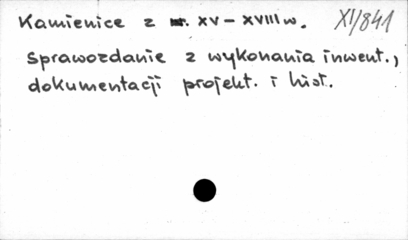 Kamienice z XV - XVIII w. XI/841
Sprawozdanie z wykonania inwent.,
dokumentacji projekt. i hist.